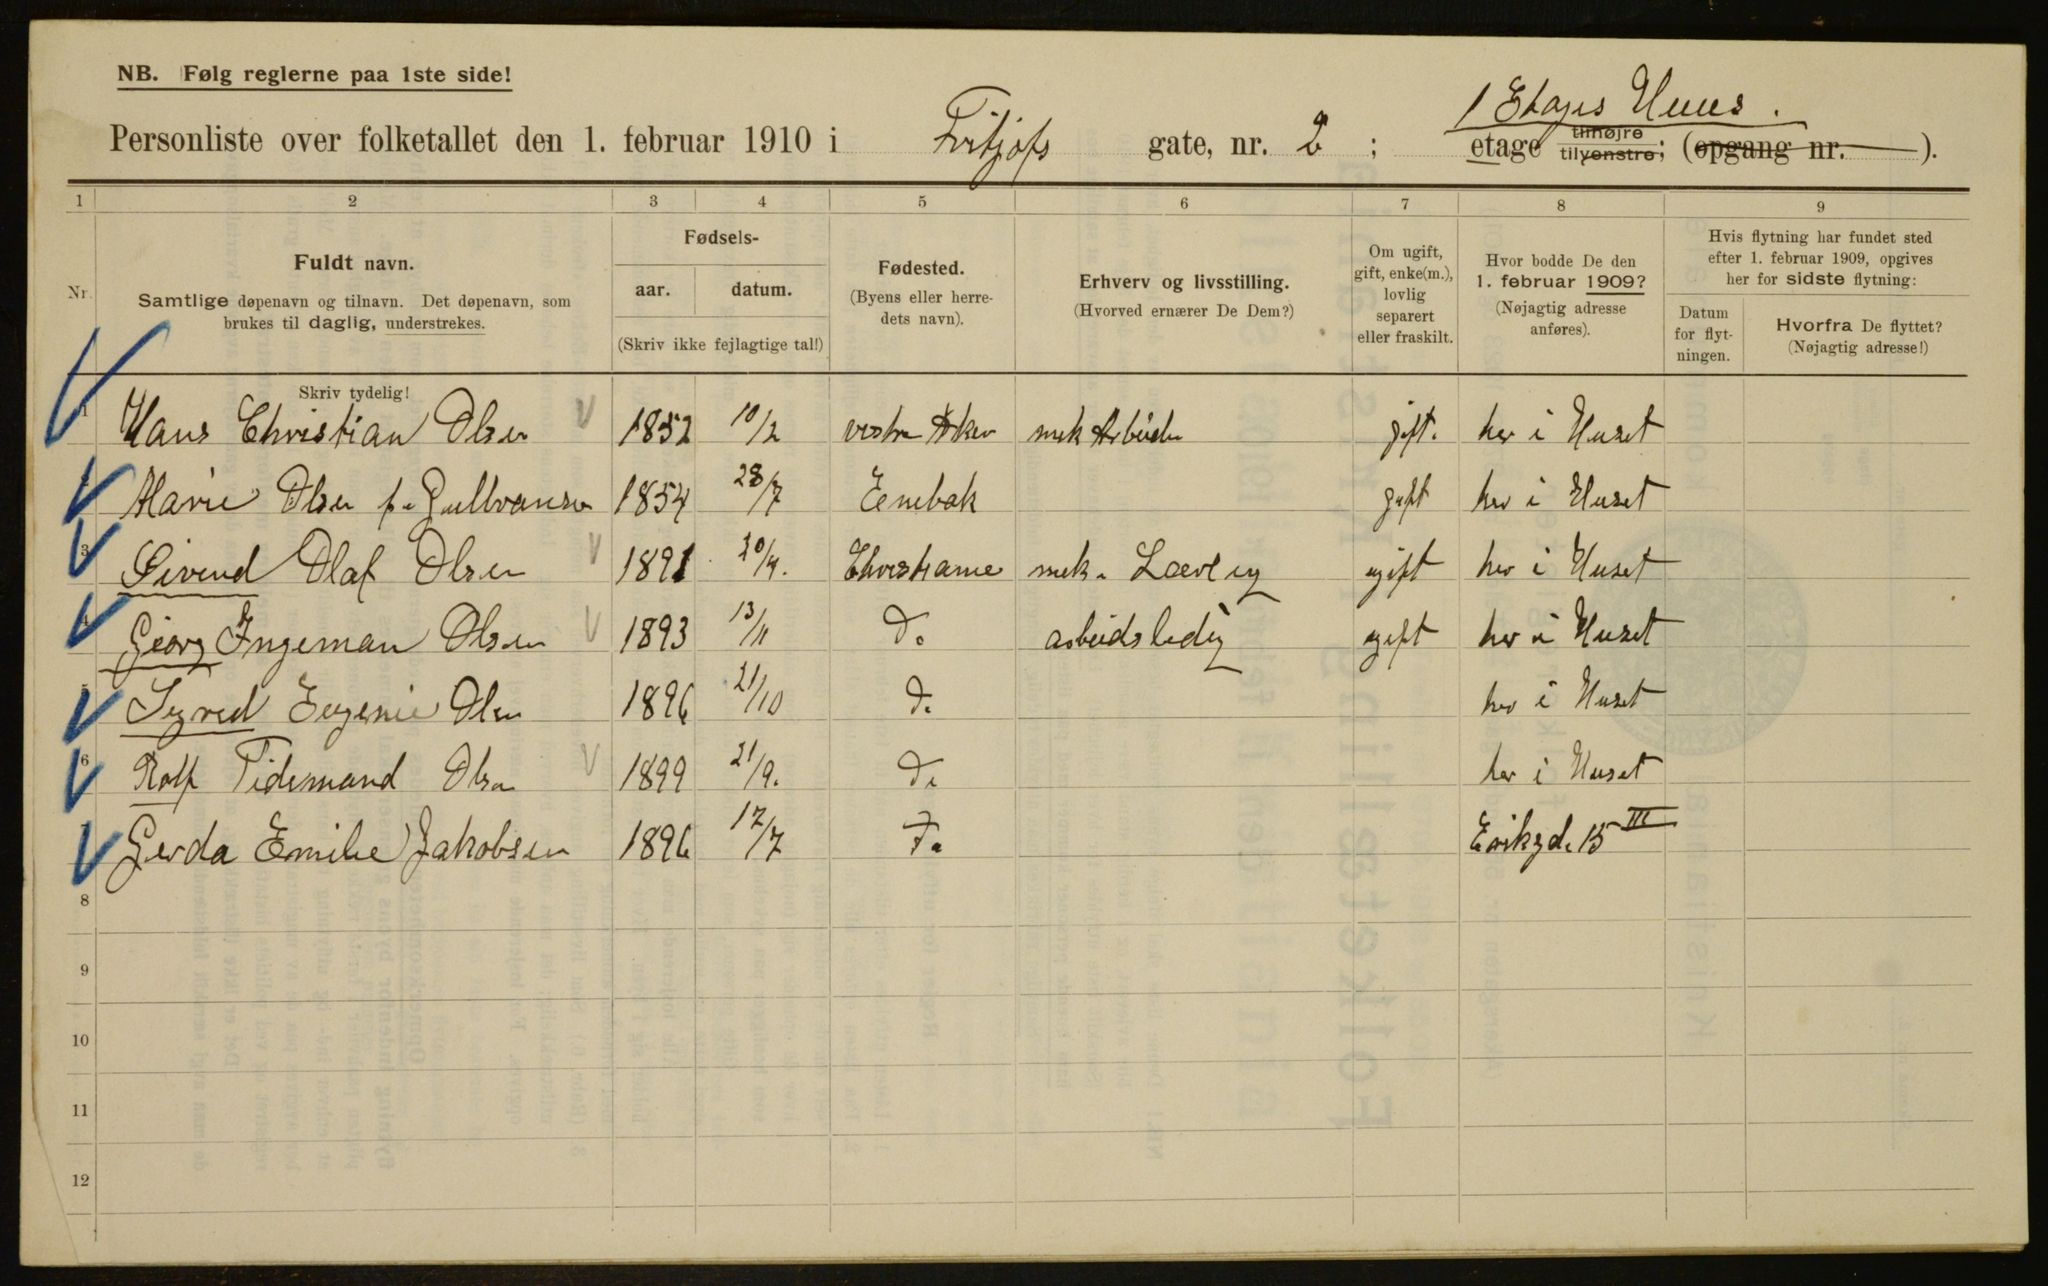 NB. Følg reglerne paa 1ste side!
1 Etages Huus.
Personliste over folketallet den 1. februar 1910 i Fritjofs gate, nr. 2; etage tilhøjre tilvenstre; (opgang nr. ).
1 2 3 4 5 6 7 8 9
Nr.
Fuldt navn.
Samtlige døpenavn og tilnavn. Det døpenavn, som
brukes til daglig, understrekes.
Skriv tydelig!
Fødsels-
aar. datum.
(Skriv ikke fejlagtige tal!)
Fødested.
(Byens eller herre-
dets navn).
Erhverv og livsstilling.
(Hvorved ernærer De Dem?)
Om ugift,
gift, enke(m.),
lovlig
separert
eller fraskilt.
Hvor bodde De den
1. februar 1909?
(Nøjagtig adresse
anføres).
Hvis flytning har fundet sted
efter 1. februar 1909, opgives
her for sidste flytning:
Datum
for flyt-
ningen.
Hvorfra De flyttet?
(Nøjagtig adresse!)
1 Hans Christian Olsen 1852 10/2 vestre Aker mek Arbeider gift. her i Huset
Marie Olsen f. 1854 28/7 Enebak gift her i Huset
3 Øivend Olaf Olsen 1891 20/4. Christiania mek. ugift her i Huset
4 Georg Ingeman Olsen 1893 13/11 do arbeidsledig ugift her i Huset
5 Sigred Eugenie Olsen 1896 21/10 do her i Huset
6 Rolf Tidemand Olsen 1899 21/9. do her i Huset
Gerda Emilie Jakobsen 1896 17/7 Eriksgd. 15 III
8
9
10
11
12